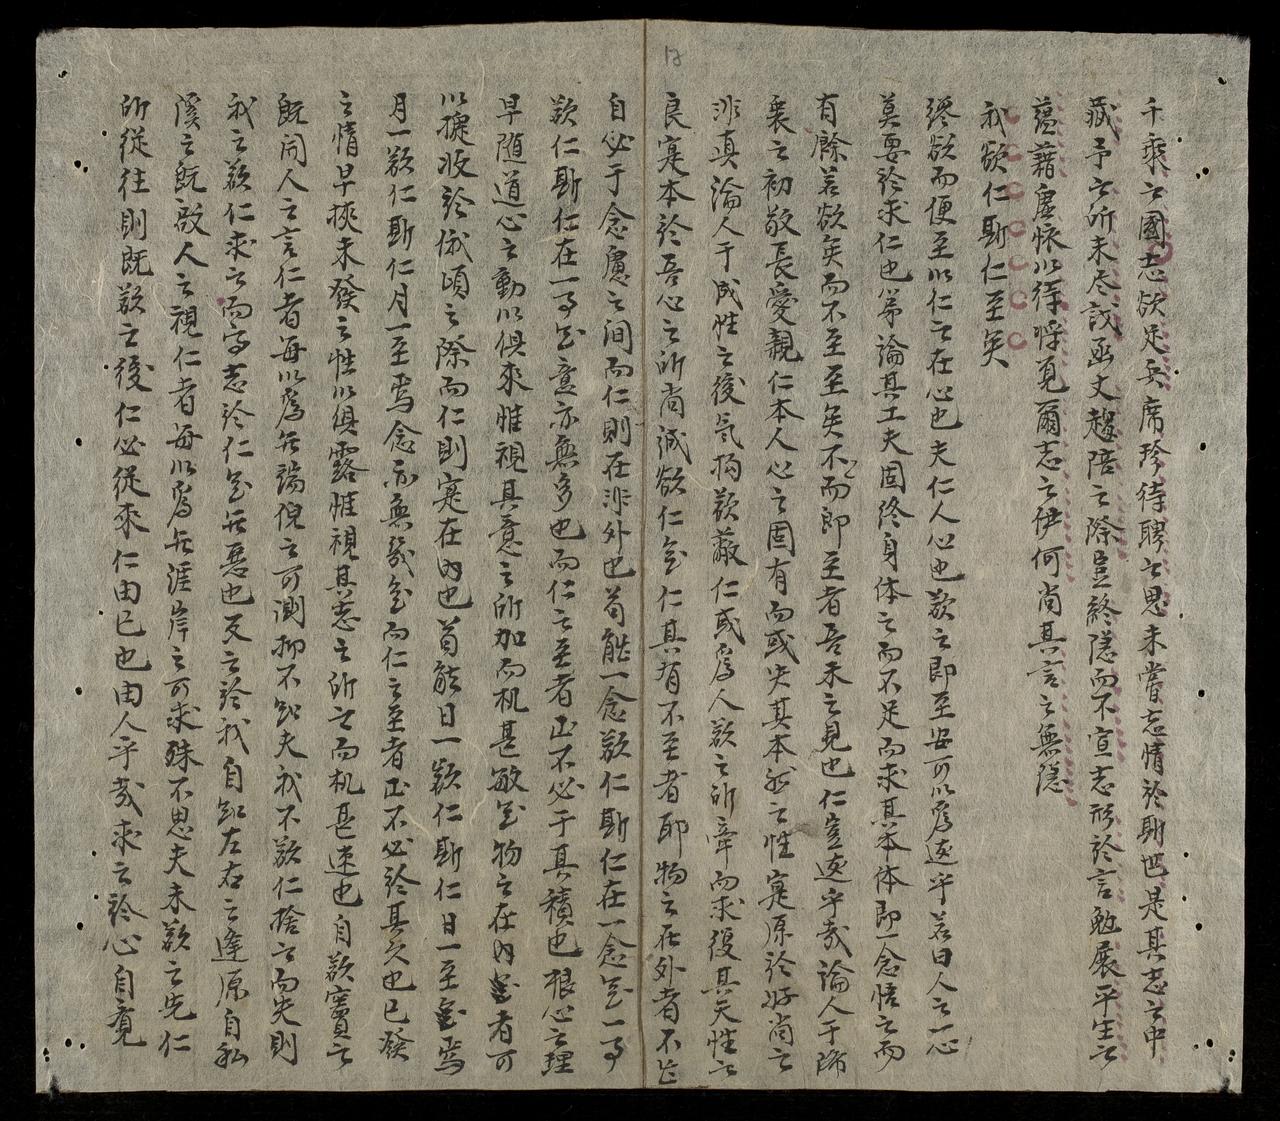 千乘之國志欲足兵席珍待聘之思未嘗忘情於斯世是其志之中
藏予之所未尽識函丈趨陪之際豈終隱而不宣志形於言勉展平生之
蘊藉虛怀以待将覓爾志之伊何尚其言之無隱
我欲仁斯仁至矣
纔欲而便至以仁之在心也夫仁人心也欲之即至安可以為遠乎若曰人之一心
莫要於求仁也第論其工夫固終身体之而不足而求其本体即一念悟之而
有餘若欲矣而不至至矣而不即至者吾未之見也仁豈遠乎哉論人于降
衷之初敬長愛親仁本人心之固有而或失其本然之性寔原於好尚之
非真論人于成性之後气拘欲蔽仁或為人欲之所牽而求復其天性之
良寔本於吾心之所尚誠欲仁矣仁其有不至者耶物之在外者不能
自必于念慮之间而仁則在非外也苟能一念欲仁斯仁在一念矣一事
欲仁斯仁在一事矣意亦無多也而仁之至者正不必于真積也根心之理
早随道心之動以俱來惟視其意之所加而机甚敏矣物之在内者可
以捷收於俄頃之際而仁則寔在内也苟能日一欲仁斯仁日一至焉
月一欲仁斯仁月一至焉念亦無幾矣而仁之至者正不必於其久也已發
之情早挾未發之性以俱露惟視其志之所之而机甚速也自欲竇之
既開人之言仁者每以為無端倪之可測抑不知夫我不欲仁捨之而失則
我之欲仁求之而得志於仁矣無惡也反之於我自知左右之逢原自私
溪之既啟人之視仁者每以為無涯岸之可求殊不思夫未欲之先仁
所從往則既欲之後仁必從來仁由己也由人乎哉求之於心自覓